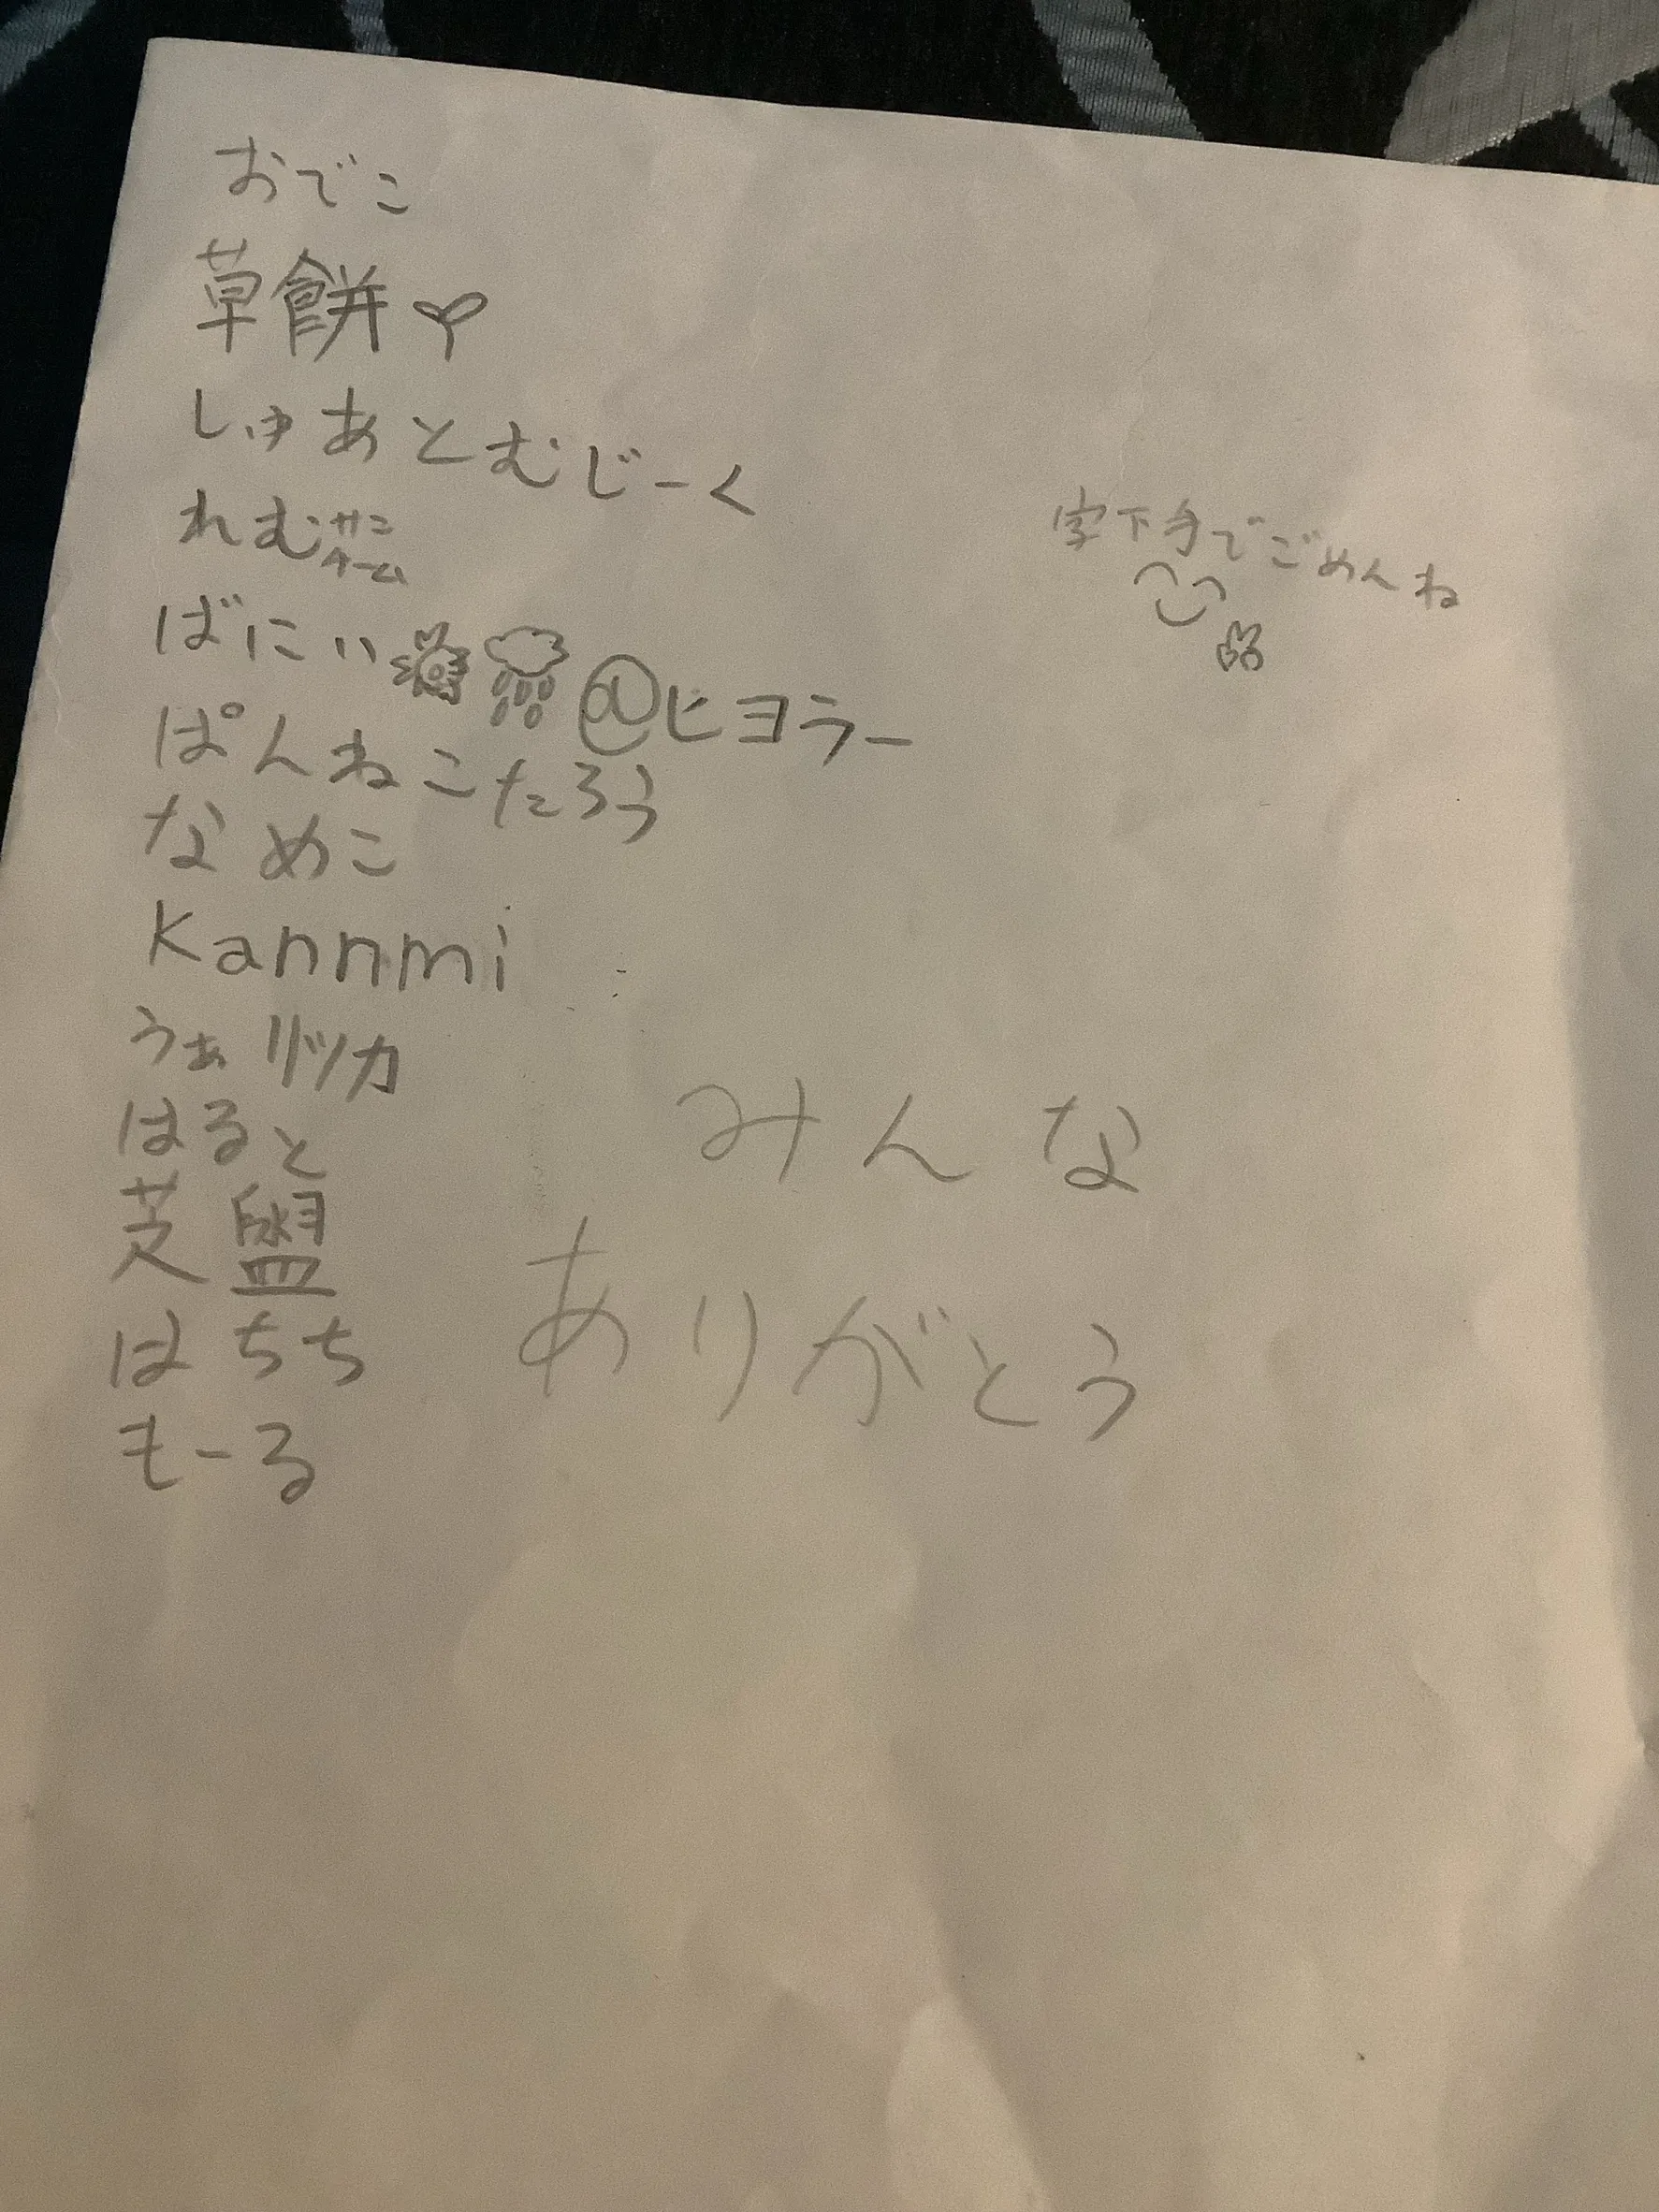 おでこ
草餅🌱
しゅあとむじーく
れむサニ
ばにぃ@ヒヨラー
ぱんねこたろう
なめこ
Kannmi
うぁリツカ
はると
芝
はちち
もーる
字下手でごめんね
みんな
ありがとう